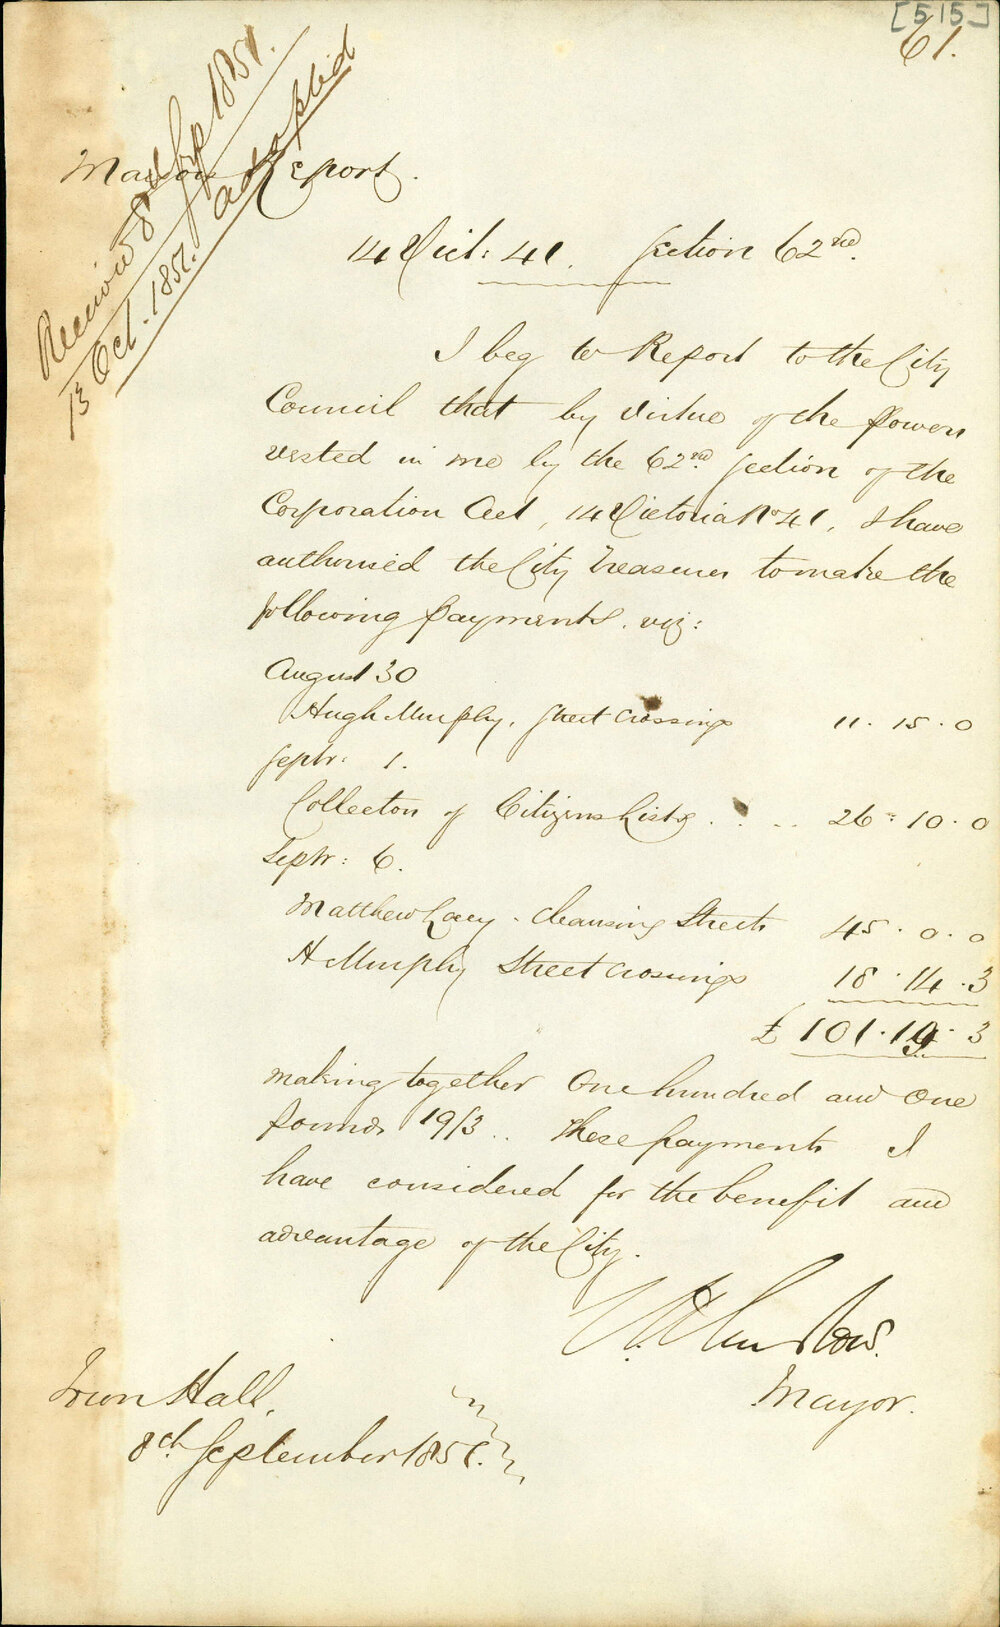 [515]
61.
Received 8th Sep 1851.
13 Oct. 1851. adopted
Mayors Report.
14 Vict: 41. Section 62nd.
I beg to Report to the City
Council that by virtue of the powers
vested in me by the 62nd Section of the
Corporation Act, 14 Victoria No 41, I have
authorised the City Treasurer to make the
following payments. viz:
August 30
Hugh Murphy, Street Crossings 11. 15. 0
Septr: 1.
Collectors of Citizens Lists . . .. 26: 10. 0
Septr: 6.
Matthew Lacy - Cleansing Streets 45. 0. 0
H Murphy Street Crossings 18. 14. 3
£ 101. 19. 3
making together One hundred and One
pounds 19/3.. These payments I
have considered for the benefit and
advantage of the City.
Mayor.
Town Hall,
8th September 1851.